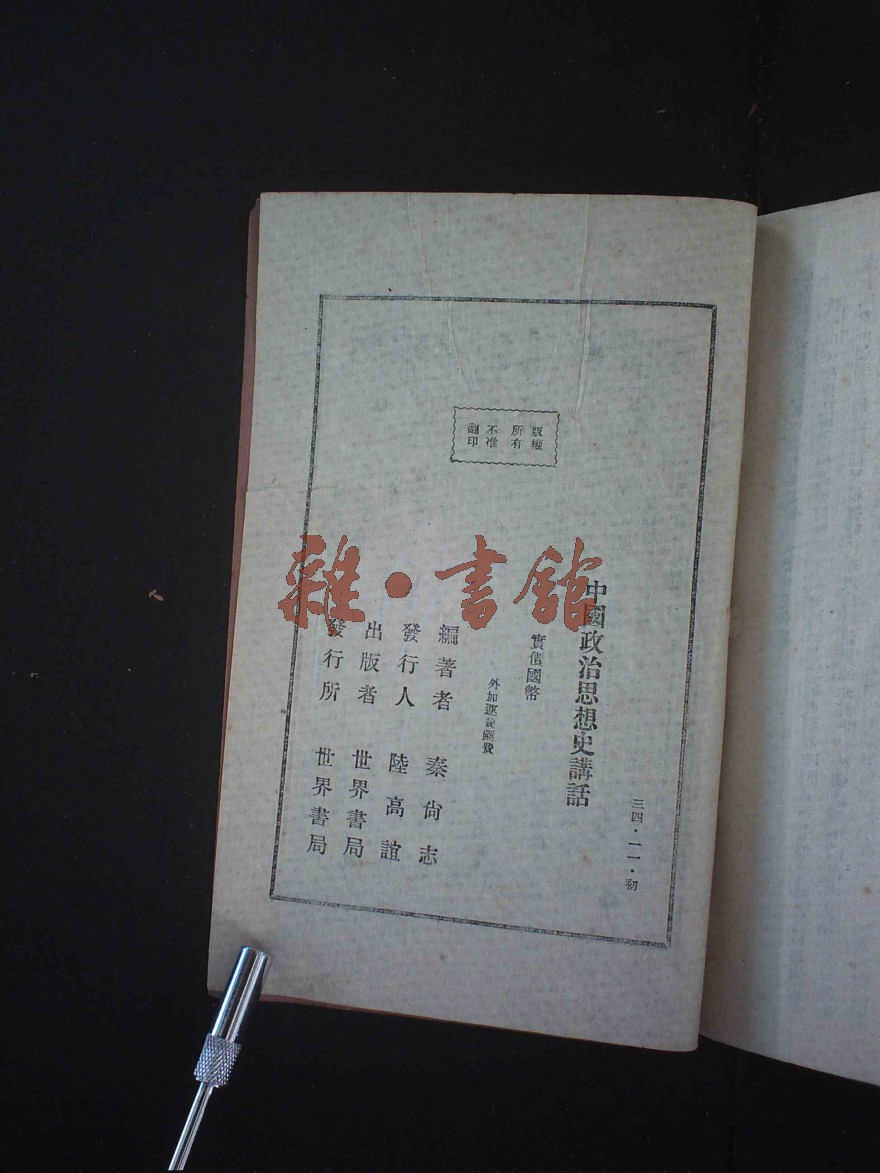 三四·一一·初
中國政治思想史講話
實價國幣
外加運費匯費
編著者 秦尙志
發行人 陸高誼
出版者 世界書局
發行所 世界書局
版權
所有
不准
翻印
雜·書館